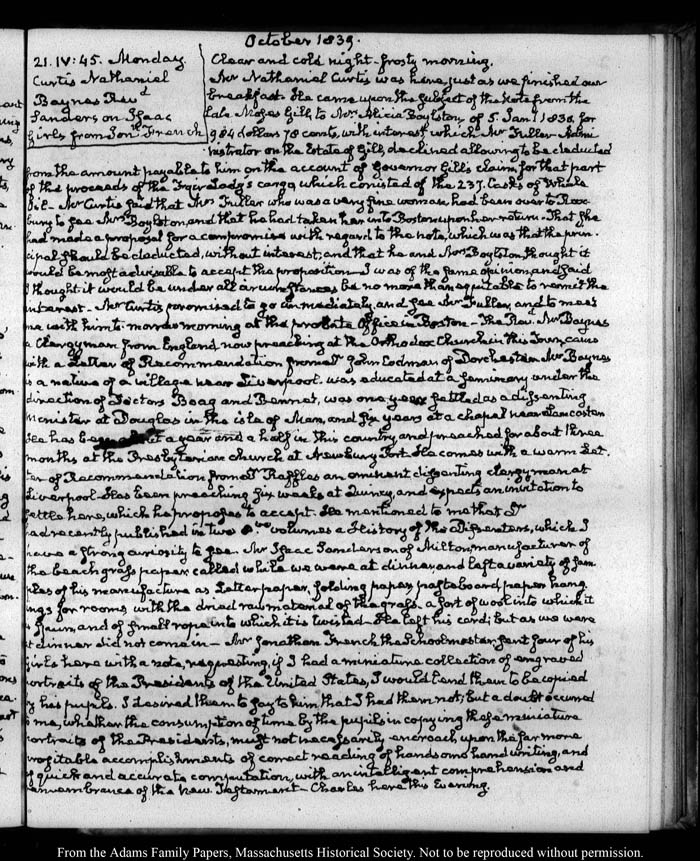 October 1839.
21. IV: 45. Monday.
Curtis Nathaniel
Baynes Revd
Sanderson Isaac
Girls from Jonn. French
Clear and cold night - frosty morning.
Mr Nathaniel Curtis was here, just as we finished our
breakfast. He came upon the subject of the Note from the
late Moses Gill to Mrs Alicia Boylston, of 5. Jany 1830. for
984 dollars 78 cents, with interest which Mr Fuller Admi-
nistrator on the Estate of Gill, declined allowing to be deducted
from the amount payable to him on the account of Governor Gill's claim, for that part
of the proceeds of the cargo which consisted of the 237. Casks of Whale
Oil - Mr Curtis said that Mrs Fuller who was a very fine woman had been over to Rox-
bury to see Mrs Boylston, and that he had taken her into Boston upon her return - That she
had made a proposal for a compromise with regard to the note, which was that the prin-
cipal should be deducted, without interest, and that he and Mrs Boylston thought it
would be most advisable to accept the proposition - I was of the same opinion, and said
I thought it would be under all circumstances be no more than equitable to remit the
interest - Mr Curtis promised to go immediately, and see Mr Fuller, and to meet
me with him to-morrow morning at the probate Office in Boston - The Revd. Mr Baynes
a Clergyman from England now preaching at the Orthodox Church in this Town, came
with a Letter of Recommendation from Dr John Codman of Dorchester. Mr Baynes
is a native of a village near Liverpool. was educated at a seminary under the
direction of Doctors Boag and Bennet, was one year settled as a dissenting
Minister at Douglas in the isle of Man, and six years at a chapel near Lancaster
He has been about a year and a half in this country, and preached for about three
months at the Presbyterian church at Newbury Port. He comes with a warm Let-
ter of Recommendation from Dr Raffles an eminent dissenting clergyman at
Liverpool. Has been preaching six weeks at Quincy, and expects an invitation to
settle here, which he proposes to accept. He mentioned to me that Dr
had recently published in two 8.vo volumes a History of the Dissenters, which I
have a strong curiosity to see. Mr Isaac Sanderson of Milton, manufacturer of
the beach grass paper called while we were at dinner and left a variety of sam-
ples of his manufacture as Letter paper, folding paper, pasteboard, paper hang-
ings for rooms, with the dried raw material of the grass, a sort of wool into which it
is spun, and of small rope into which it is twisted - He left his card; but as we were
at dinner did not come in - Mr Jonathan French the Schoolmaster sent four of his
girls here with a note, requesting, if I had a miniature collection of engraved
portraits of the Presidents of the United States, I would lend them to be copied
by his pupils. I desired them to say to him that I had them not; but a doubt occurred
to me, whether the consumption of time by the pupils in copying these miniature
portraits of the Presidents, must not necessarily encroach upon the far more
profitable accomplishments of correct reading of handsome hand writing, and
of quick and accurate computation, with an intelligent comprehension and
remembrance of the New Testament - Charles here this Evening.
From the Adams Family Papers, Massachusetts Historical Society. Not to be reproduced without permission.